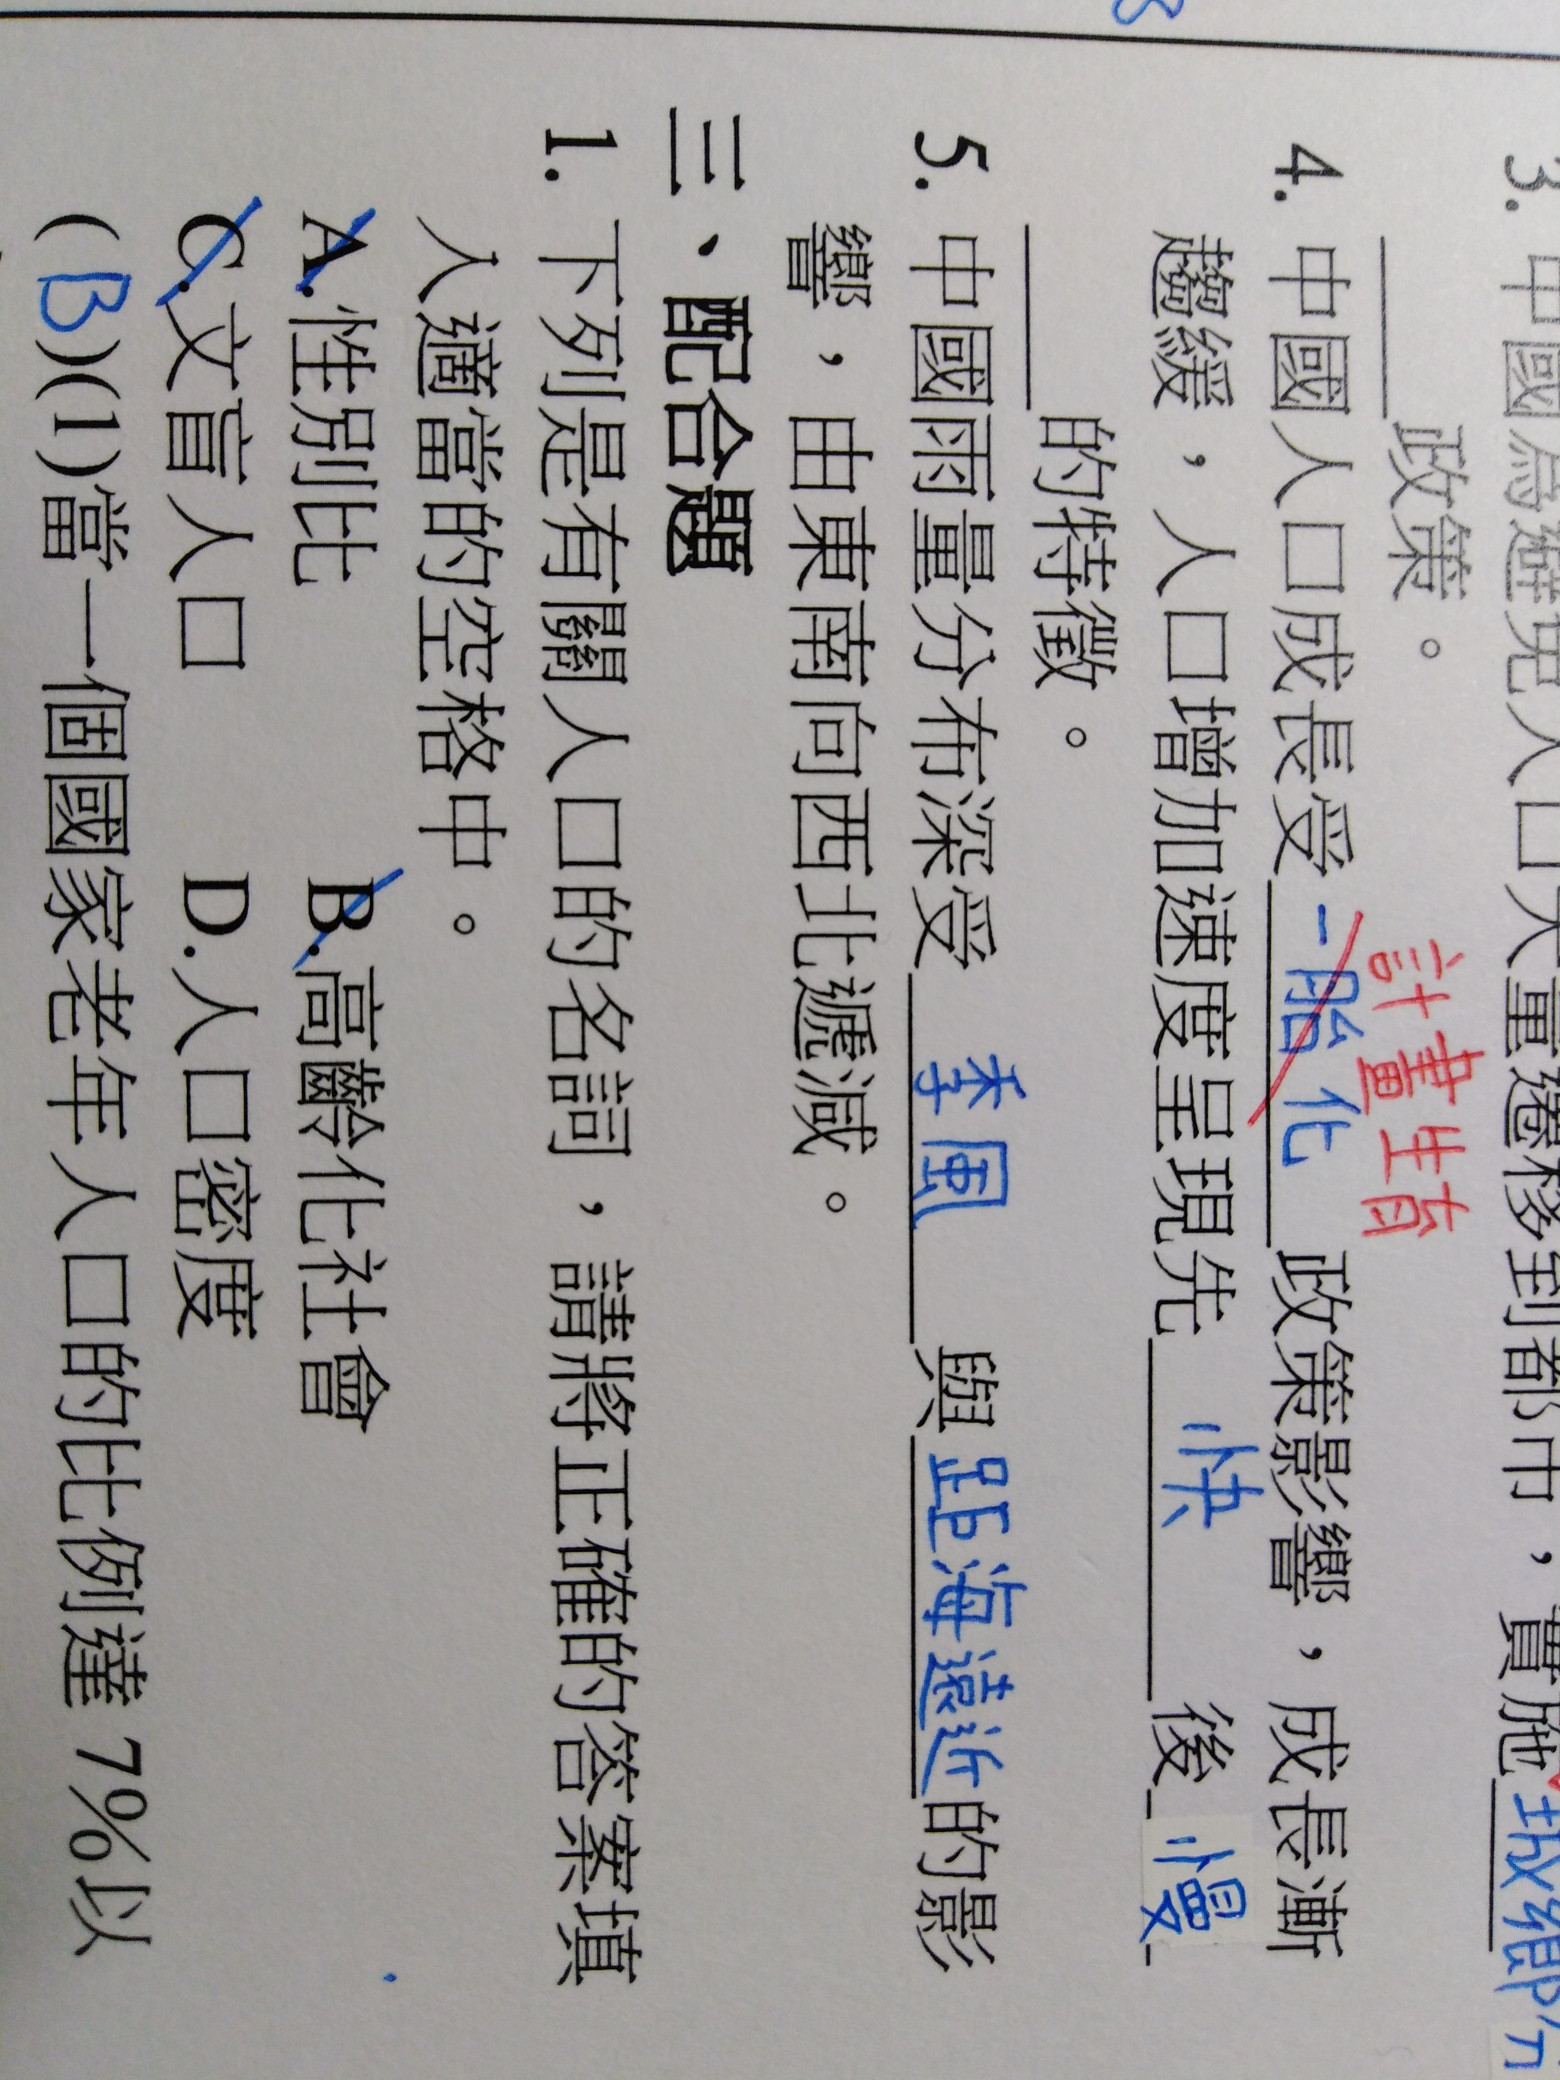 3. 中國為避免人口大量遷移到都市，實施城鄉分
政策。
計畫生育
4. 中國人口成長受一胎化政策影響，成長漸
趨緩，人口增加速度呈現先快後慢
的特徵。
5. 中國雨量分布深受季風與距海遠近的影
響，由東南向西北遞減。
三、配合題
1. 下列是有關人口的名詞，請將正確的答案填
人適當的空格中。
A.性別比 B.高齡化社會
C.文盲人口 D.人口密度
(B)(1)當一個國家老年人口的比例達 7%以